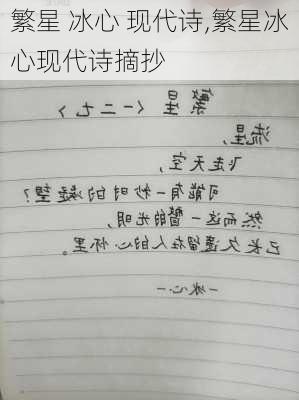 繁星 冰心 现代诗,繁星冰
心现代诗摘抄
繁星〈一二七〉
流星,
飞走天空,
可能有一秒时的凝望?
然而这一瞥的光明,
已长久遗留在人的心怀里。
—冰心—